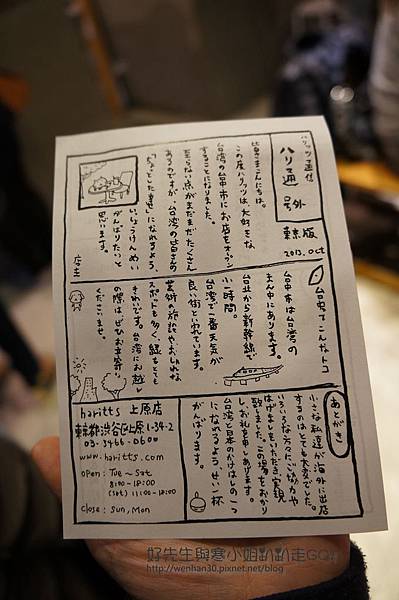 ハリッツ通信
ハリ通 号外
東京版
2013.Oct
皆さまこんにちは。
この度ハリッツは、大好きな
台湾の台中市にお店をオープン
することになりました。
至らない点がまだまだたくさん
あるのですが、台湾の皆さんの
「ほっとした幸せ」になれるよう、
いっしょうけんめい
がんばりたいと
思います。
店主
台中ってこんなトコ
台中市は台湾の
まん中にあります。
台北から新幹線で
小一時間。
台湾で一番天気が
良い街といわれています。
芸術の施設やおしゃれな
スポットも多く、緑もとても
きれいです。台湾にお越し
の際はぜひお立寄り
くださいませ。
あとがき
小さな私達が海外に出店
するのはとても大変でした。
いろいろな方々にご協力や
はげましをいただき実現
致しました。この場をおかり
し、お礼を申しあげます。
台湾と日本のかけはしの一つ
になれるようせい一杯
がんばります。
haritts 上原店
東京都渋谷区上原1-34-2
03-3466-0600
www.haritts.com
open: Tue ~ Sat
8:00 - 18:00
(sat) 11:00 - 18:00
Close: Sun, Mon
好先生與寒小姐趴趴走GO!!
http://wenhan30.pixnet.net/blog